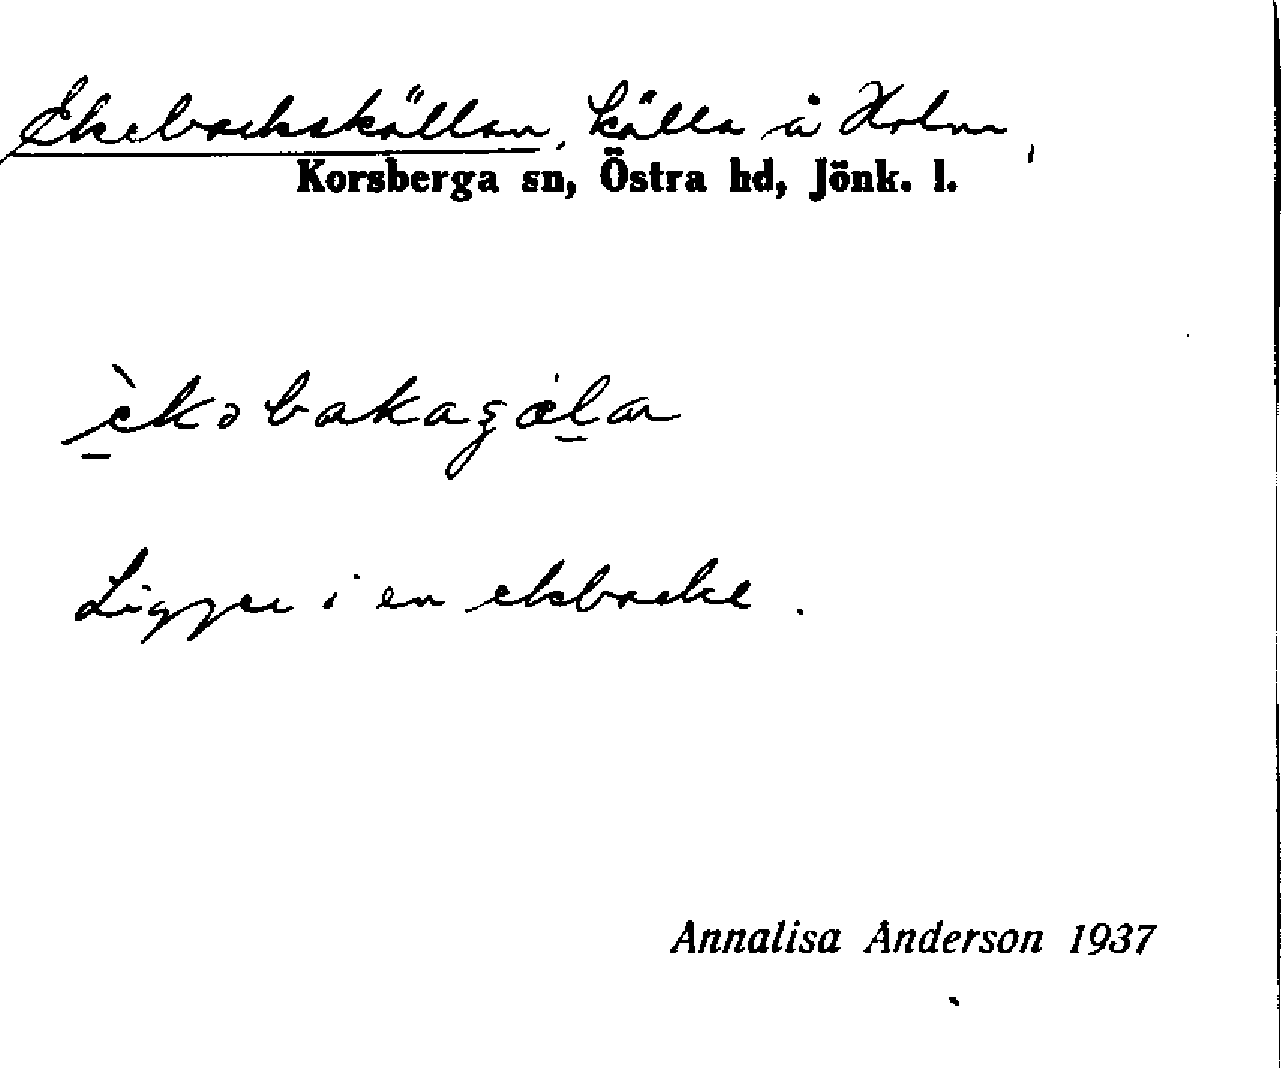 Ekebackskällan, källa å Holm,
Korsberga sn, Östra hd, Jönk. l.
Ligger i en ekbacke.
Annalisa Anderson 1937